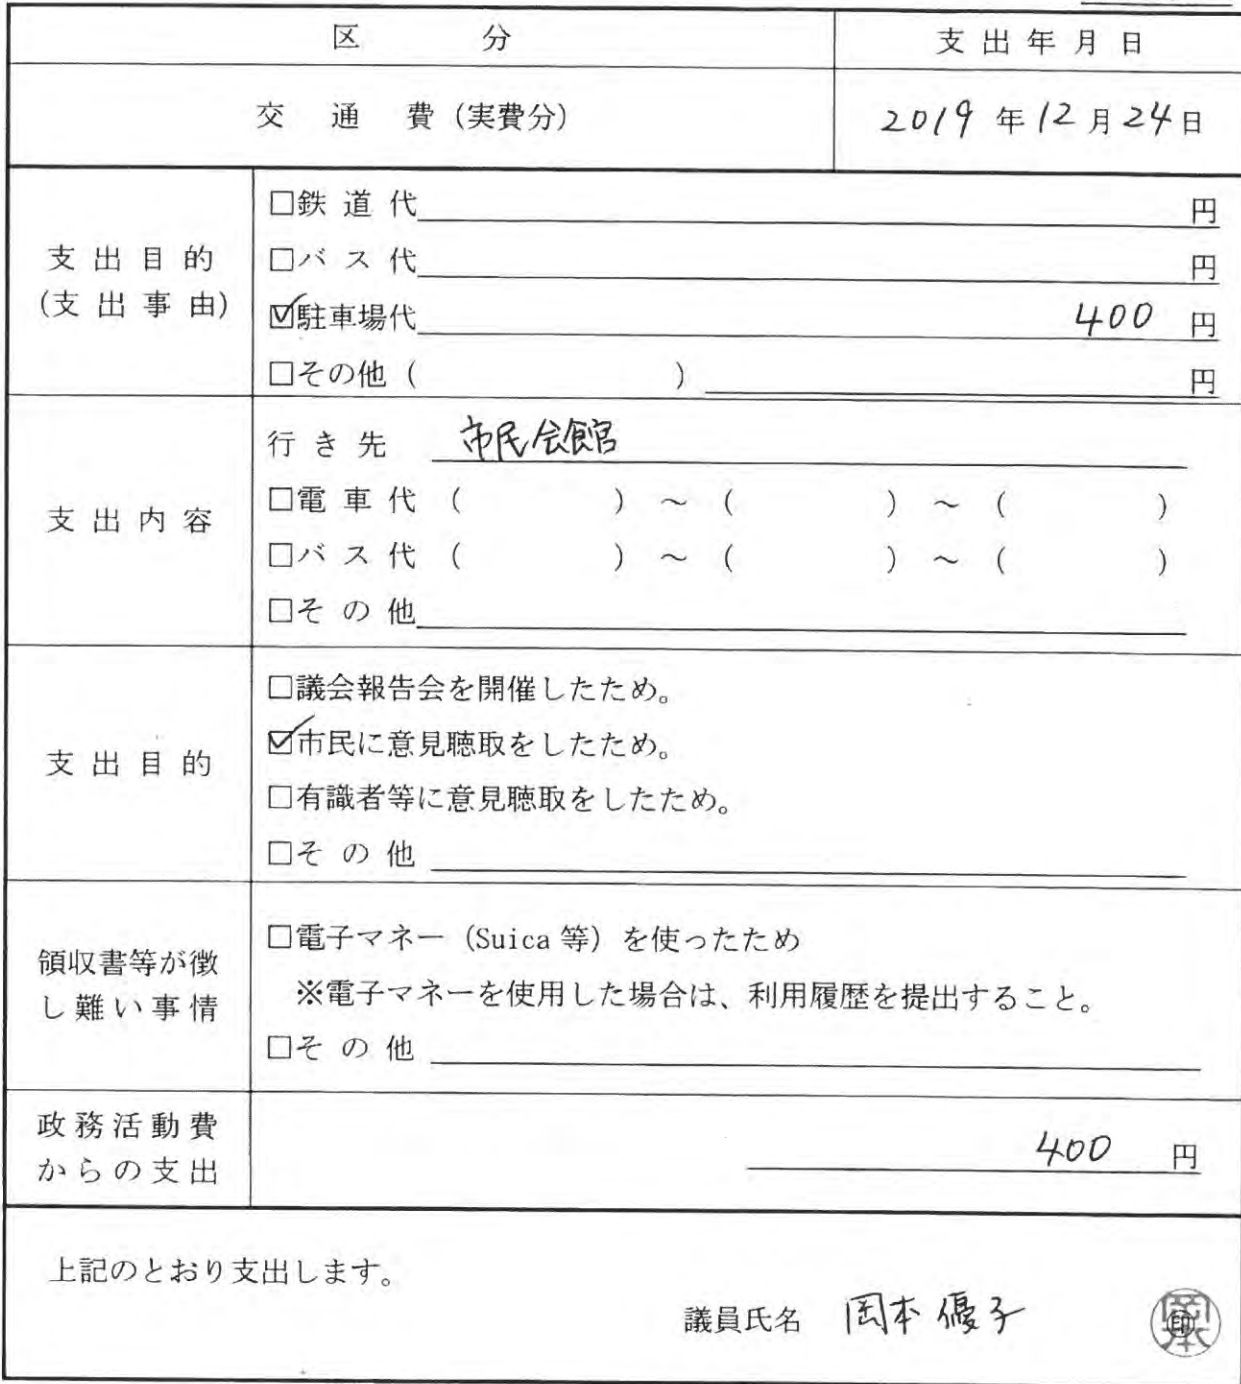 区 分 支出年月日
交 通 費 (実費分) 2019 年 12 月 24 日
支出目的
(支出事由)
□鉄道代 円
□バス代 円
☑駐車場代 400 円
□その他 ( ) 円
支出内容
行き先 市民会館
□電車代 ( ) ～ ( ) ～ ( )
□バス代 ( ) ～ ( ) ～ ( )
□その他
支出目的
□議会報告会を開催したため。
☑市民に意見聴取をしたため。
□有識者等に意見聴取をしたため。
□その他
領収書等が徴
し難い事情
□電子マネー (Suica 等) を使ったため
※電子マネーを使用した場合は、利用履歴を提出すること。
□その他
政務活動費
からの支出
400 円
上記のとおり支出します。
議員氏名 岡本優子 ㊞
岡本